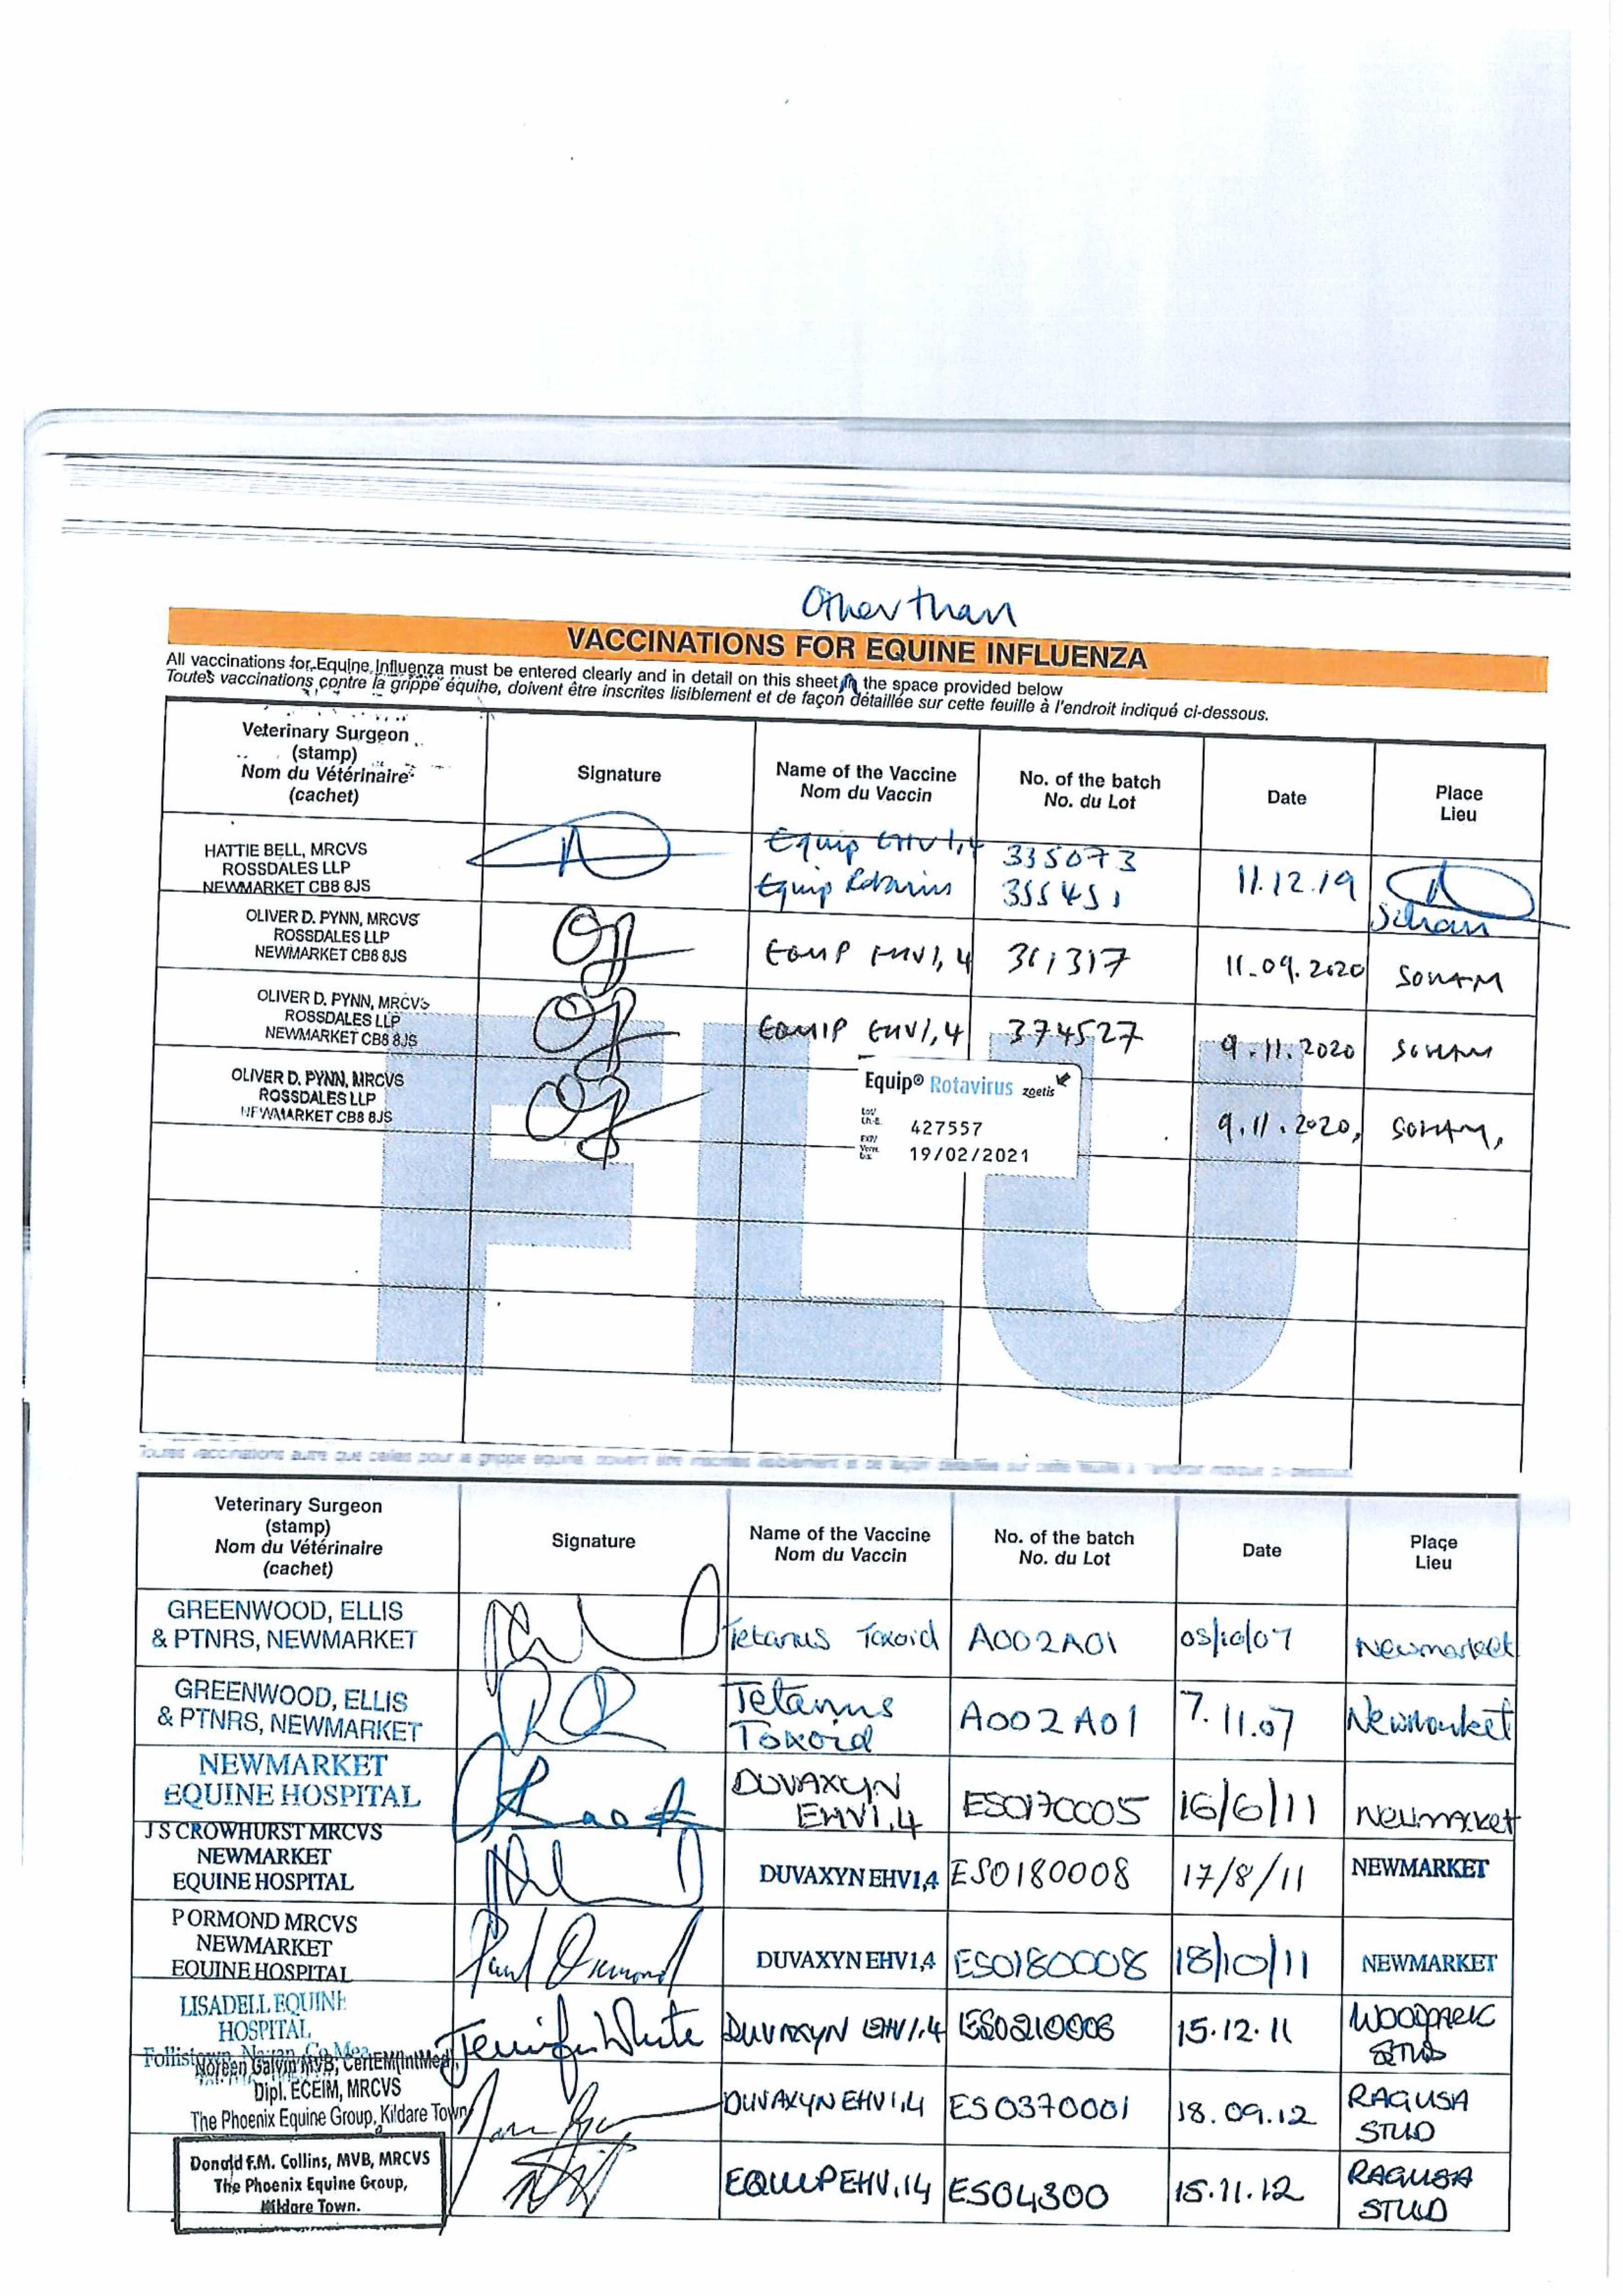 Other than
VACCINATIONS FOR EQUINE INFLUENZA
All vaccinations for Equine Influenza must be entered clearly and in detail on this sheet in the space provided below
Toutes vaccinations contre la grippe équine, doivent être inscrites lisiblement et de façon détaillée sur cette feuille à l'endroit indiqué ci-dessous.
Veterinary Surgeon
(stamp)
Nom du Vétérinaire
(cachet)
Signature
Name of the Vaccine
Nom du Vaccin
No. of the batch
No. du Lot
Date
Place
Lieu
HATTIE BELL, MRCVS
ROSSDALES LLP
NEWMARKET CB8 8JS
Equip EHV 1,4
Equip Rotavirus
335073
355451
11.12.19
Soham
OLIVER D. PYNN, MRCVS
ROSSDALES LLP
NEWMARKET CB8 8JS
EQUIP EHV1,4
361317
11.09.2020
SOHAM
OLIVER D. PYNN, MRCVS
ROSSDALES LLP
NEWMARKET CB8 8JS
EQUIP EHV1,4
374527
9.11.2020
SOHAM
OLIVER D. PYNN, MRCVS
ROSSDALES LLP
NEWMARKET CB8 8JS
Equip® Rotavirus zoetis
427557
19/02/2021
9.11.2020,
SOHAM,
FLU
Toutes vaccinations autre que celles pour la grippe equine, doivent être inscrites lisiblement et de façon détaillée sur cette feuille à l'endroit indiqué ci-dessous
Veterinary Surgeon
(stamp)
Nom du Vétérinaire
(cachet)
Signature
Name of the Vaccine
Nom du Vaccin
No. of the batch
No. du Lot
Date
Place
Lieu
GREENWOOD, ELLIS
& PTNRS, NEWMARKET
Tetanus Toxoid
A002A01
03/10/07
Newmarket
GREENWOOD, ELLIS
& PTNRS, NEWMARKET
Tetanus
Toxoid
A002A01
7.11.07
Newmarket
NEWMARKET
EQUINE HOSPITAL
DUVAXYN
EHV1,4
ES0170005
16/6/11
Newmarket
J S CROWHURST MRCVS
NEWMARKET
EQUINE HOSPITAL
DUVAXYN EHV1,4
ES0180008
17/8/11
NEWMARKET
P ORMOND MRCVS
NEWMARKET
EQUINE HOSPITAL
Paul Ormond
DUVAXYN EHV1,4
ES0180008
18/10/11
NEWMARKET
LISADELL EQUINE
HOSPITAL
Jennifer White
DUVAXYN EHV1,4
ES0210006
15.12.11
WOODPARK
STUD
Noreen Galvin MVB, CertEM(IntMed),
Dipl. ECEIM, MRCVS
The Phoenix Equine Group, Kildare Town
DUVAXYN EHV1,4
ES0370001
18.09.12
RAGUSA
STUD
Donald F.M. Collins, MVB, MRCVS
The Phoenix Equine Group,
Kildare Town.
EQUIP EHV,14
ES04300
15.11.12
RAGUSA
STUD